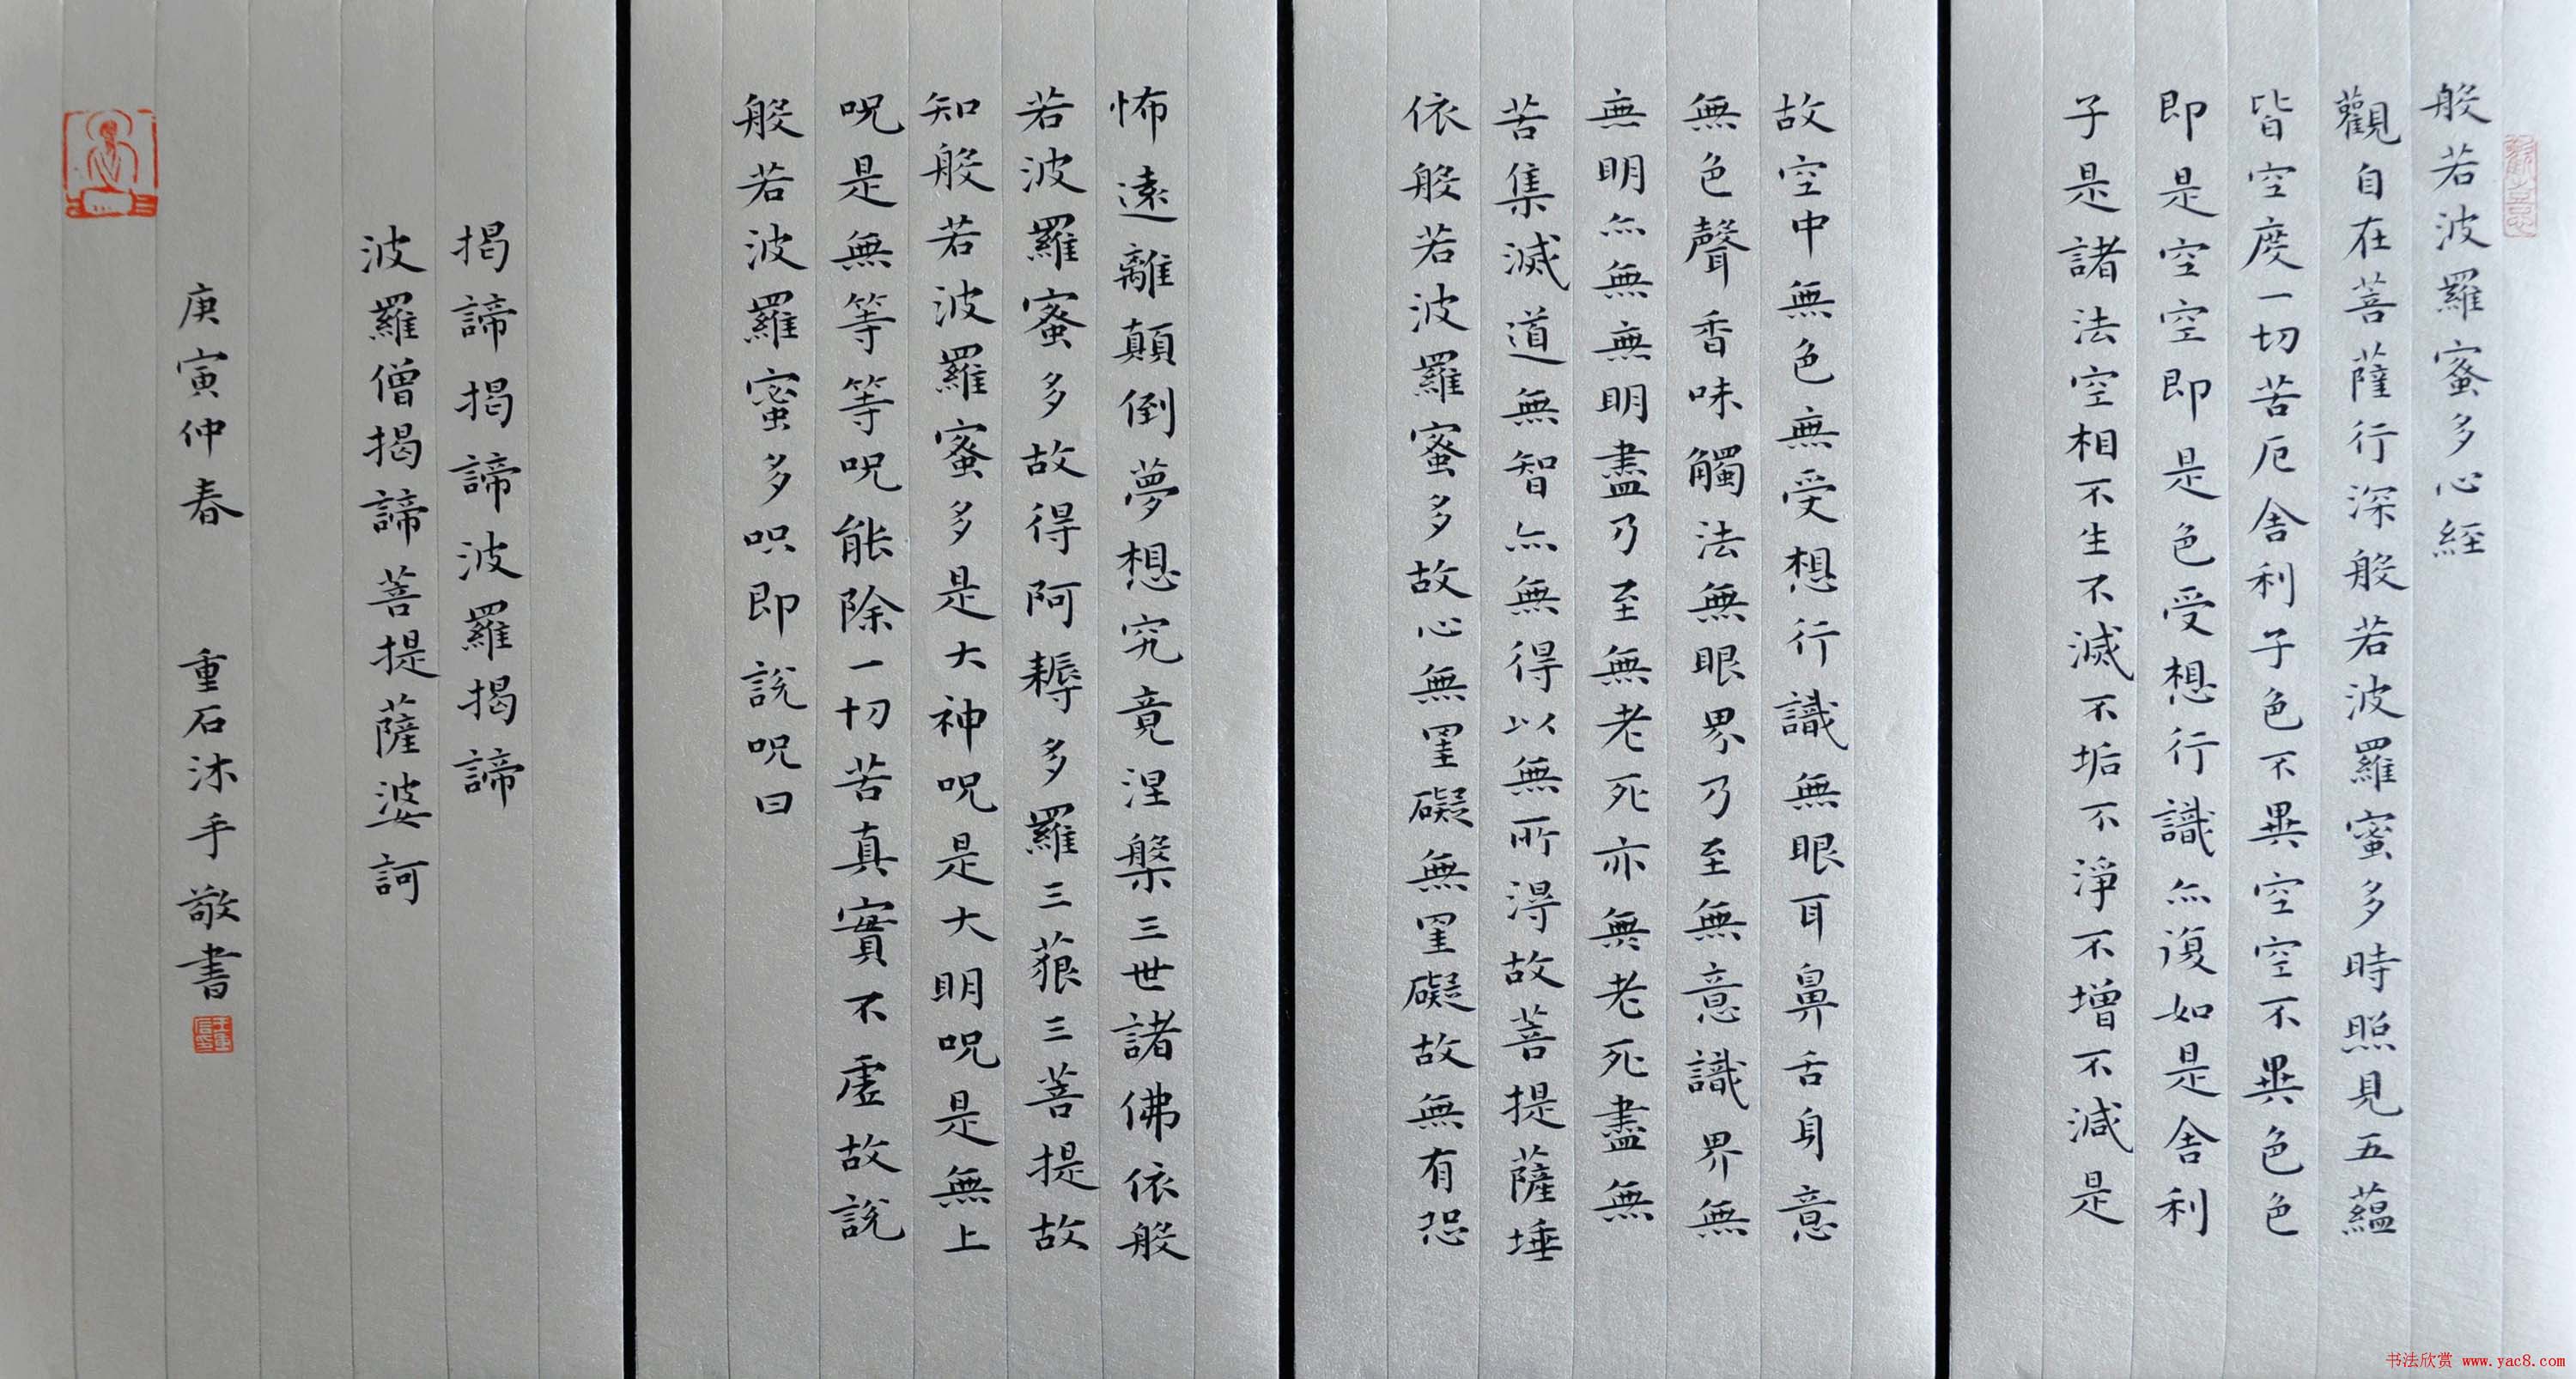 般若波羅蜜多心經
觀自在菩薩行深般若波羅蜜多時照見五蘊
皆空度一切苦厄舍利子色不異空空不異色色
即是空空即是色受想行識亦復如是舍利
子是諸法空相不生不滅不垢不淨不增不減是
故空中無色無受想行識無眼耳鼻舌身意
無色聲香味觸法無眼界乃至無意識界無
無明亦無無明盡乃至無老死亦無老死盡無
苦集滅道無智亦無得以無所得故菩提薩埵
依般若波羅蜜多故心無罣礙無罣礙故無有恐
怖遠離顛倒夢想究竟涅槃三世諸佛依般
若波羅蜜多故得阿耨多羅三藐三菩提故
知般若波羅蜜多是大神呪是大明呪是無上
呪是無等等呪能除一切苦真實不虛故說
般若波羅蜜多呪即說呪曰
揭諦揭諦波羅揭諦
波羅僧揭諦菩提薩婆訶
庚寅仲春 重石沐手敬書
书法欣赏 www.yac8.com